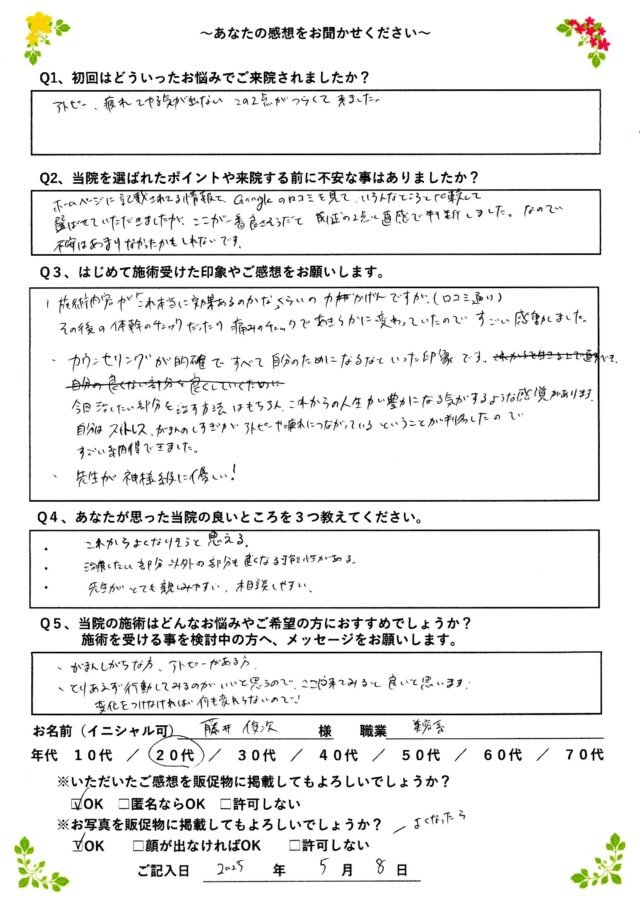 ～あなたの感想をお聞かせください～
Q1、初回はどういったお悩みでご来院されましたか？
アトピー、疲れてやる気が出ない この2点がつらくて来ました。
Q2、当院を選ばれたポイントや来院する前に不安な事はありましたか？
ホームページに記載されてる情報と、Googleの口コミを見て、いろんなところと比較して
選ばせていただきましたが、ここが一番良さそうだと 前述の2点と直感で判断しました。なので
不安はあまりなかったかもしれないです。
Q３、はじめて施術受けた印象やご感想をお願いします。
・施術内容が「これ本当に効果あるのかな」くらいの力加減ですが、(口コミ通り)
その後の体幹のチェックだったり 痛みのチェックであきらかに変わっていたので すごい感動しました。
・カウンセリングが的確で すべて自分のためになるなといった印象です。これから生きる上で
自分の良くない部分を良くしていくために
今回治したい部分を治す方法はもちろん、これからの人生が豊かになる気がするような感覚があります。
自分は ストレス、がまんのしすぎが アトピーや疲れにつながっている ということが判明したので
すごい納得できました。
・先生が神様級に優しい！
Q４、あなたが思った当院の良いところを３つ教えてください。
・これからよくなりそうと思える。
・治療したい部分以外の部分も良くなる可能性がある。
・先生がとても親しみやすい、相談しやすい。
Q５、当院の施術はどんなお悩みやご希望の方におすすめでしょうか？
施術を受ける事を検討中の方へ、メッセージをお願いします。
・がまんしがちな方、アトピーがある方
・とりあえず行動してみるのがいいと思うので、ここに来てみると良いと思います
変化をつけなければ何も変わらないので！
お名前（イニシャル可） 藤井 俊次 様 職業
年代 １０代 ／ ２０代 ／ ３０代 ／ ４０代 ／ ５０代 ／ ６０代 ／ ７０代
※いただいたご感想を販促物に掲載してもよろしいでしょうか？
☑OK □匿名ならOK □許可しない
※お写真を販促物に掲載してもよろしいでしょうか？ よくなったら
☑OK □顔が出なければOK □許可しない
ご記入日 2025 年 5 月 8 日